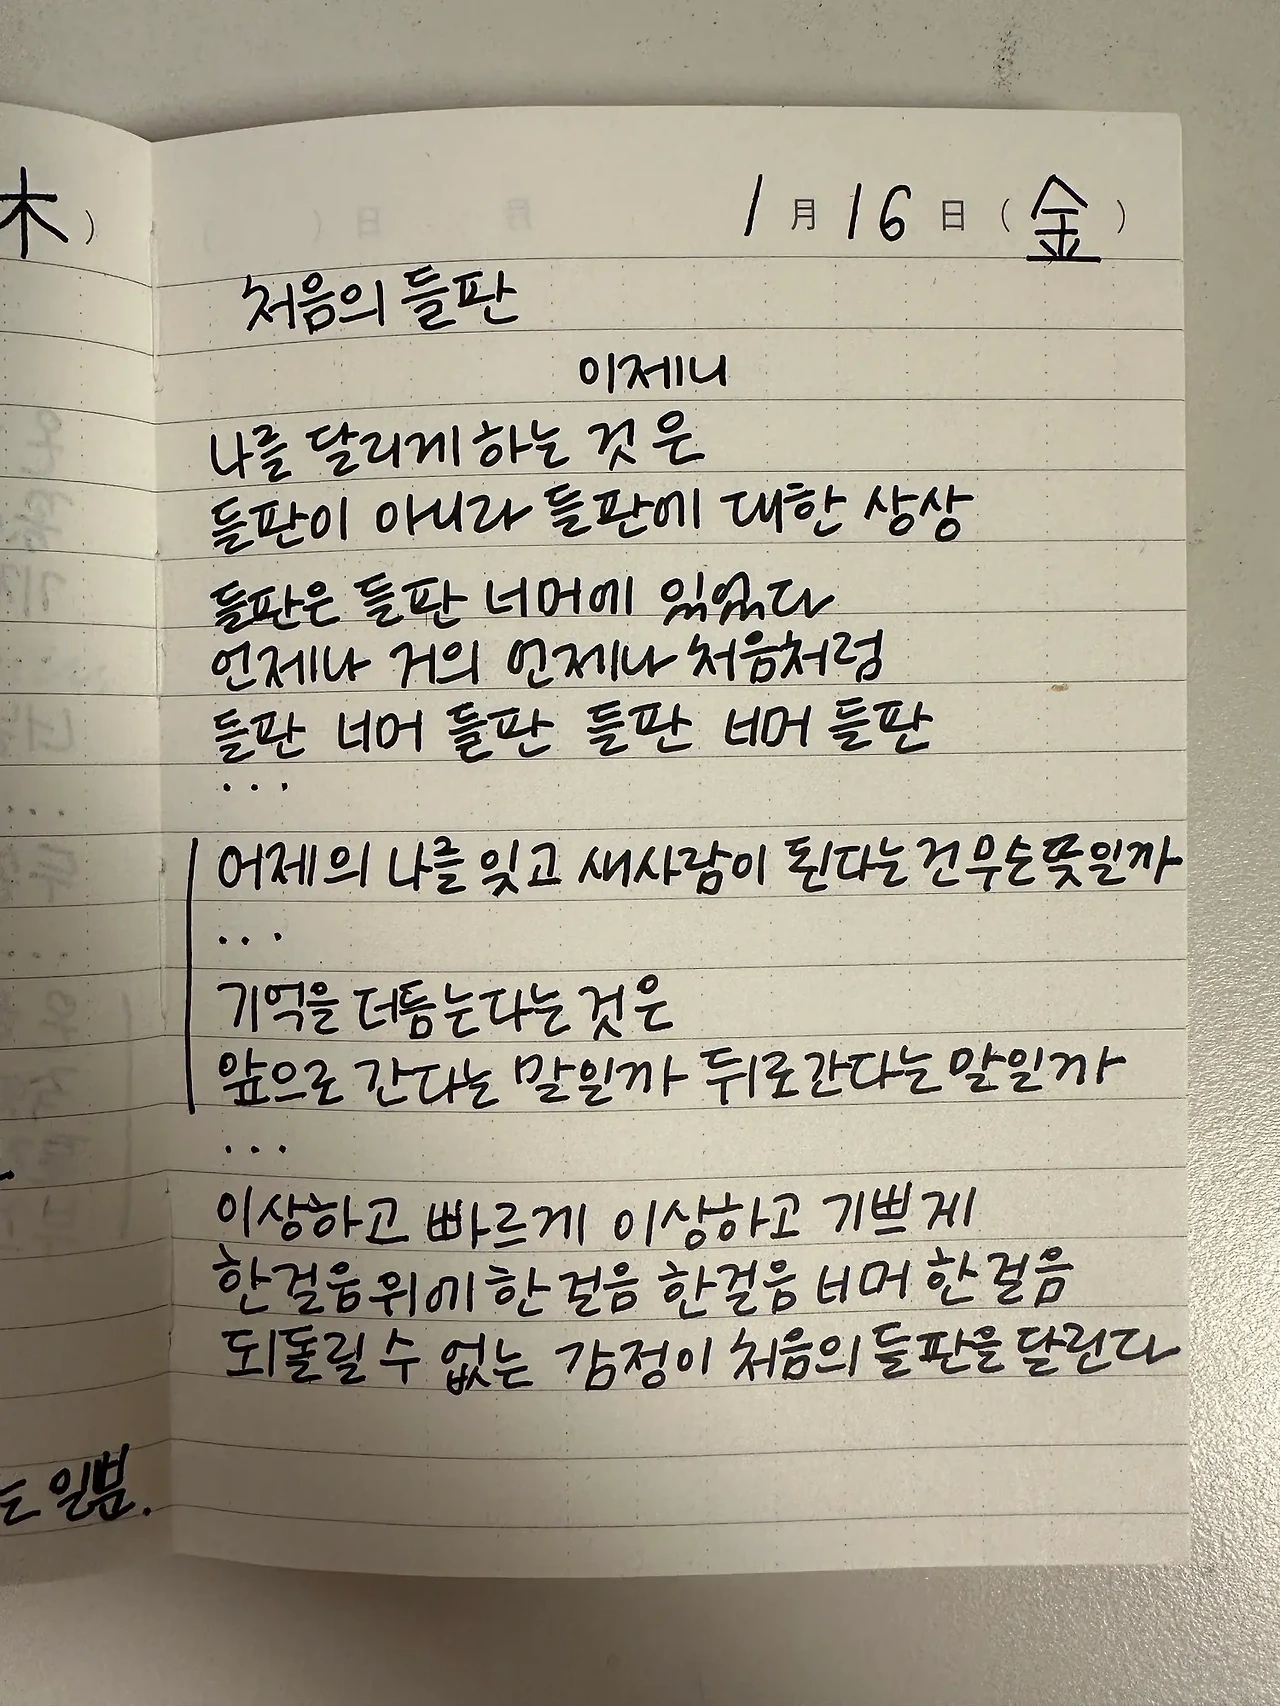 木 )
1 月 16 日 ( 金 )
처음의 들판
이제니
나를 달리게 하는 것은
들판이 아니라 들판에 대한 상상
들판은 들판 너머에 있었다
언제나 거의 언제나 처음처럼
들판 너머 들판 들판 너머 들판
...
어제의 나를 잊고 새사람이 된다는건 무슨뜻일까
...
기억을 더듬는다는 것은
앞으로 간다는 말일까 뒤로간다는 말일까
...
이상하고 빠르게 이상하고 기쁘게
한걸음 위에 한걸음 한걸음 너머 한걸음
되돌릴 수 없는 감정이 처음의 들판을 달린다
일뿐.